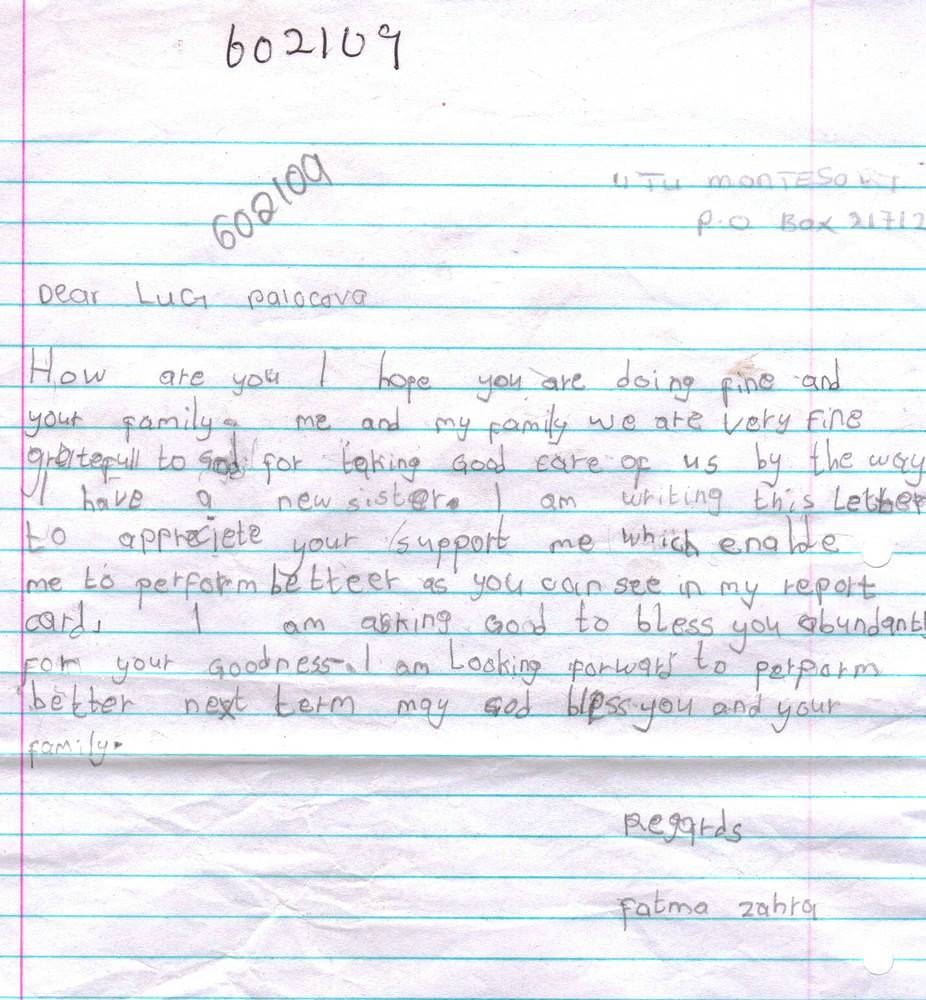 602109
602109
UTU MONTESORI
P.O Box 21712
Dear LUCI palocova
How are you I hope you are doing fine and
your family. me and my family we are very fine
gratefull to god for taking Good care of us by the way
I have a new sister. I am writing this Letter
to appreciete your support me which enable
me to perform betteer as you can see in my report
card. I am asking Good to bless you abundantl
for your Goodness. I am Looking forward to perform
better next term may god bless you and your
family.
Regards
fatma zahra